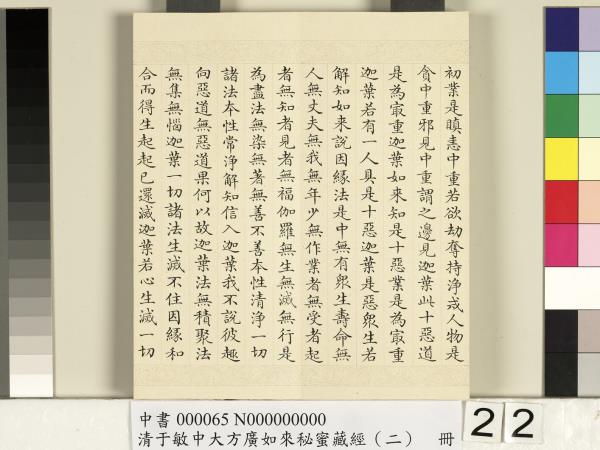 初業是瞋恚中重若欲劫奪持淨戒人物是
貪中重邪見中重謂之邊見迦葉此十惡道
是為㝡重迦葉如來知是十惡業是為㝡重
迦葉若有一人具是十惡迦葉是惡衆生若
解知如來說因緣法是中無有衆生壽命無
人無丈夫無我無年少無作業者無受者起
者無知者見者無福伽羅無生無滅無行是
為盡法無染無著無善不善本性清淨一切
諸法本性常淨解知信入迦葉我不說彼趣
向惡道無惡道果何以故迦葉法無積聚法
無集無惱迦葉一切諸法生滅不住因緣和
合而得生起起已還滅迦葉若心生滅一切
中書 000065 N000000000
清于敏中大方廣如來秘蜜藏經（二） 冊
22